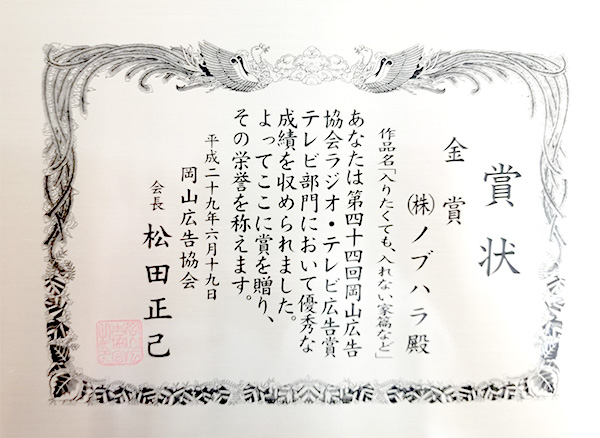 賞状
金賞
㈱ノブハラ殿
作品名「入りたくても、入れない家篇など」
あなたは第四十四回岡山広告
協会ラジオ・テレビ広告賞
テレビ部門において優秀な
成績を収められました。
よってここに賞を贈り、
その栄誉を称えます。
平成二十九年六月十九日
岡山広告協会
会長 松田正己